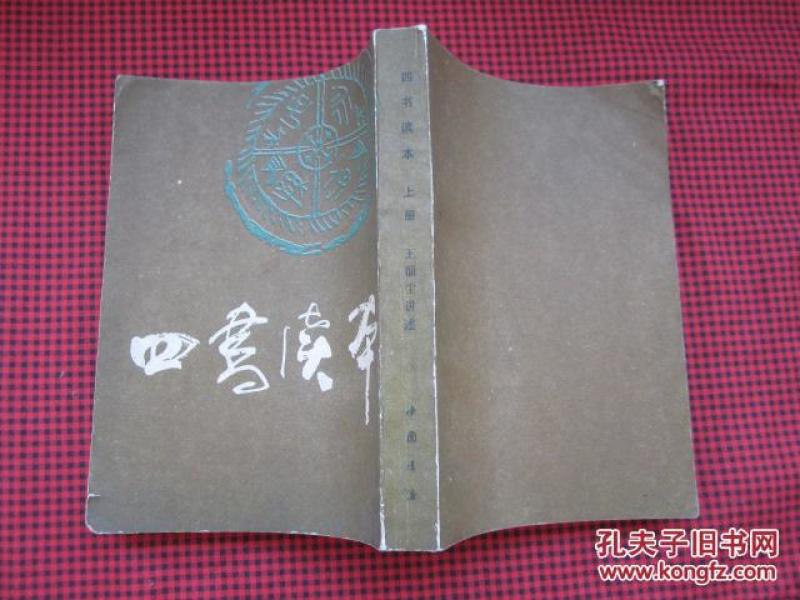 四書读本
四书读本 上册 王缁尘讲述 中国书店
孔夫子旧书网
www.kongfz.com